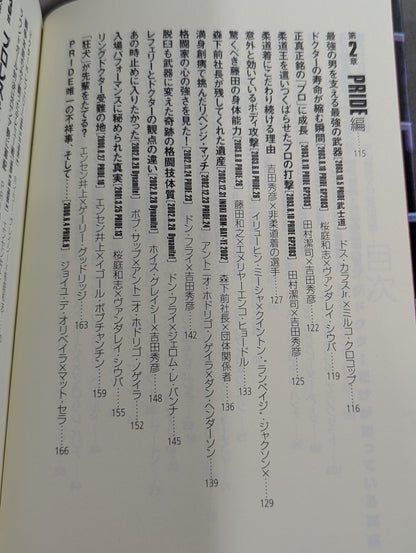 第2章 PRIDE編……115
最強の男を支える最強の武器 [2003.10.5 PRIDE武士道] ドス・カラスJr.×ミルコ・クロコップ……116
ドクターの寿命が縮む瞬間 [2003.8.10 PRIDE GP2003] 桜庭和志×ヴァンダレイ・シウバ……119
正真正銘の「プロ」に成長 [2003.8.10 PRIDE GP2003] 田村潔司×吉田秀彦……122
柔道王を這いつくばらせたプロの打撃 [2003.8.10 PRIDE GP2003] 田村潔司×吉田秀彦……125
柔道着にこだわり続ける理由 吉田秀彦×非柔道着の選手……127
意外と効いているボディ攻撃 [2003.6.8 PRIDE.26] イリューヒン・ミーシャ×クイントン・ランペイジ・ジャクソン×……129
驚くべき藤田の身体能力 [2003.6.8 PRIDE.26] 藤田和之×エメリヤーエンコ・ヒョードル……133
森下前社長が残してくれた遺産 [2002.12.31 INOKI BOM-BA-YE 2002] 森下前社長×団体関係者……136
満身創痍で挑んだリベンジ・マッチ [2002.12.23 PRIDE.24] アントニオ・ホドリゴ・ノゲイラ×ダン・ヘンダーソン……139
格闘家の心の強さを見た! [2002.11.24 PRIDE.23] ドン・フライ×吉田秀彦……142
脱臼も武器に変えた奇跡の格闘技体質 [2002.8.28 Dynamite!] ドン・フライ×ジェロム・レ・バンナ……145
レフェリーとドクターの観点の違い [2002.8.28 Dynamite!] ホイス・グレイシー×吉田秀彦……148
あの時止めに入りたかった [2002.8.28 Dynamite!] ボブ・サップ×アントニオ・ホドリゴ・ノゲイラ……152
入場パフォーマンスに秘められた真実 [2001.3.25 PRIDE.13] 桜庭和志×ヴァンダレイ・シウバ……155
リングドクター受難の地 エンセン井上×イゴール・ボブチャンチン……159
「狂犬」が先輩をたてる? エンセン井上×ゲーリー・グッドリッジ……163
PRIDE唯一の不祥事、そして…… ジョイユ・デ・オリベイラ×マット・セラ……166